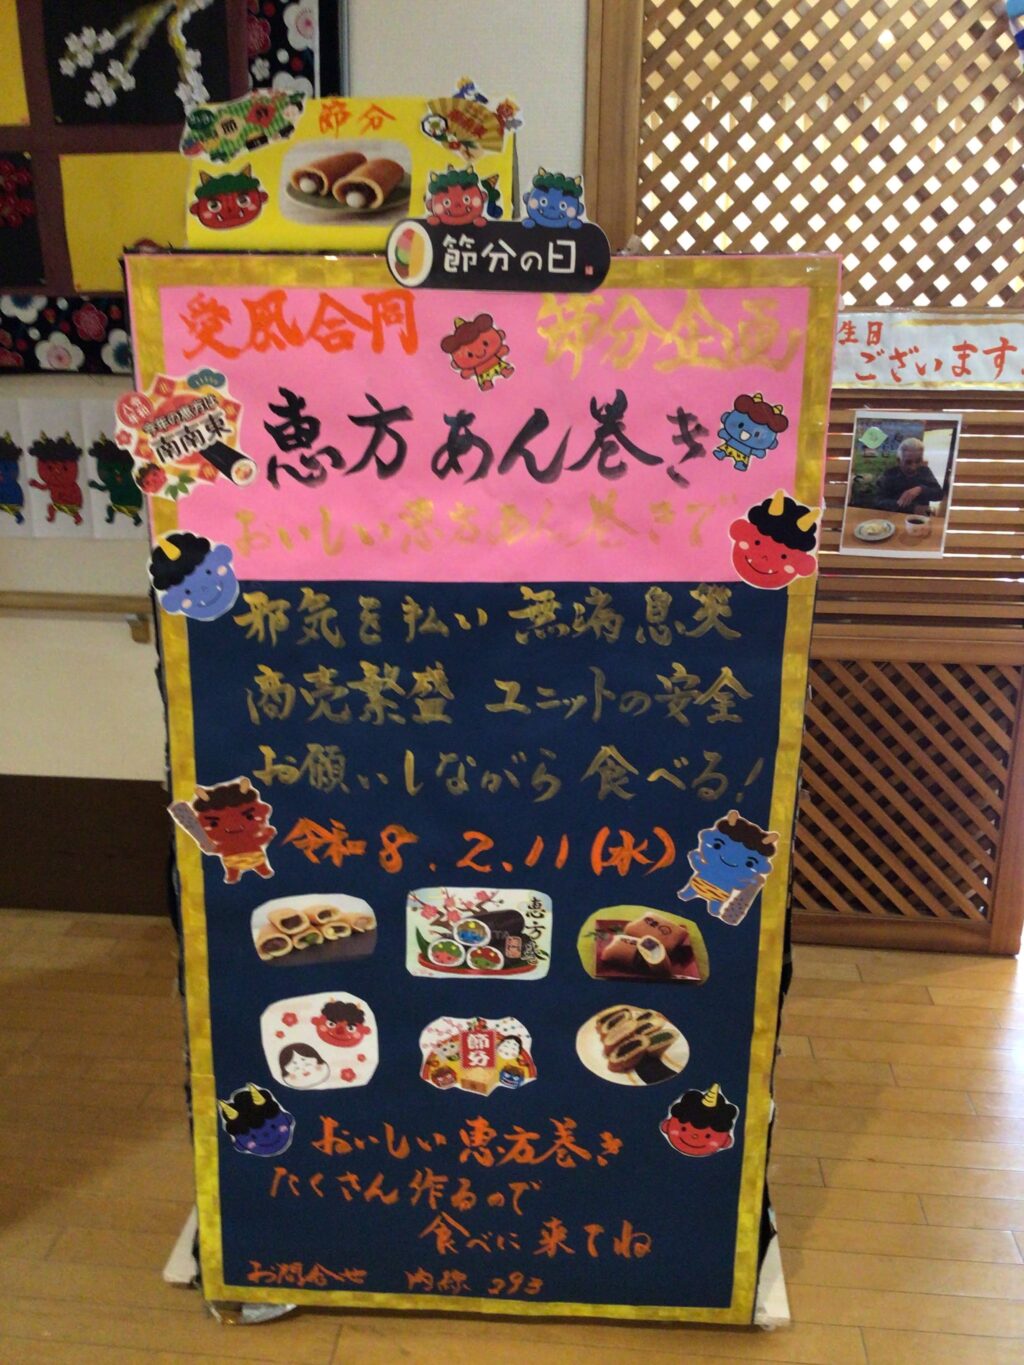 節分
節分の日
愛風合同
節分企画
今年の恵方は
南南東
恵方あん巻き
おいしい恵方あん巻きで
邪気を払い 無病息災
商売繁盛 ユニットの安全
お願いしながら 食べる!
令和8.2.11(水)
恵方巻
節分
おいしい恵方巻き
たくさん作るので
食べに来てね
お問合せ 内線 293
生日
ございます